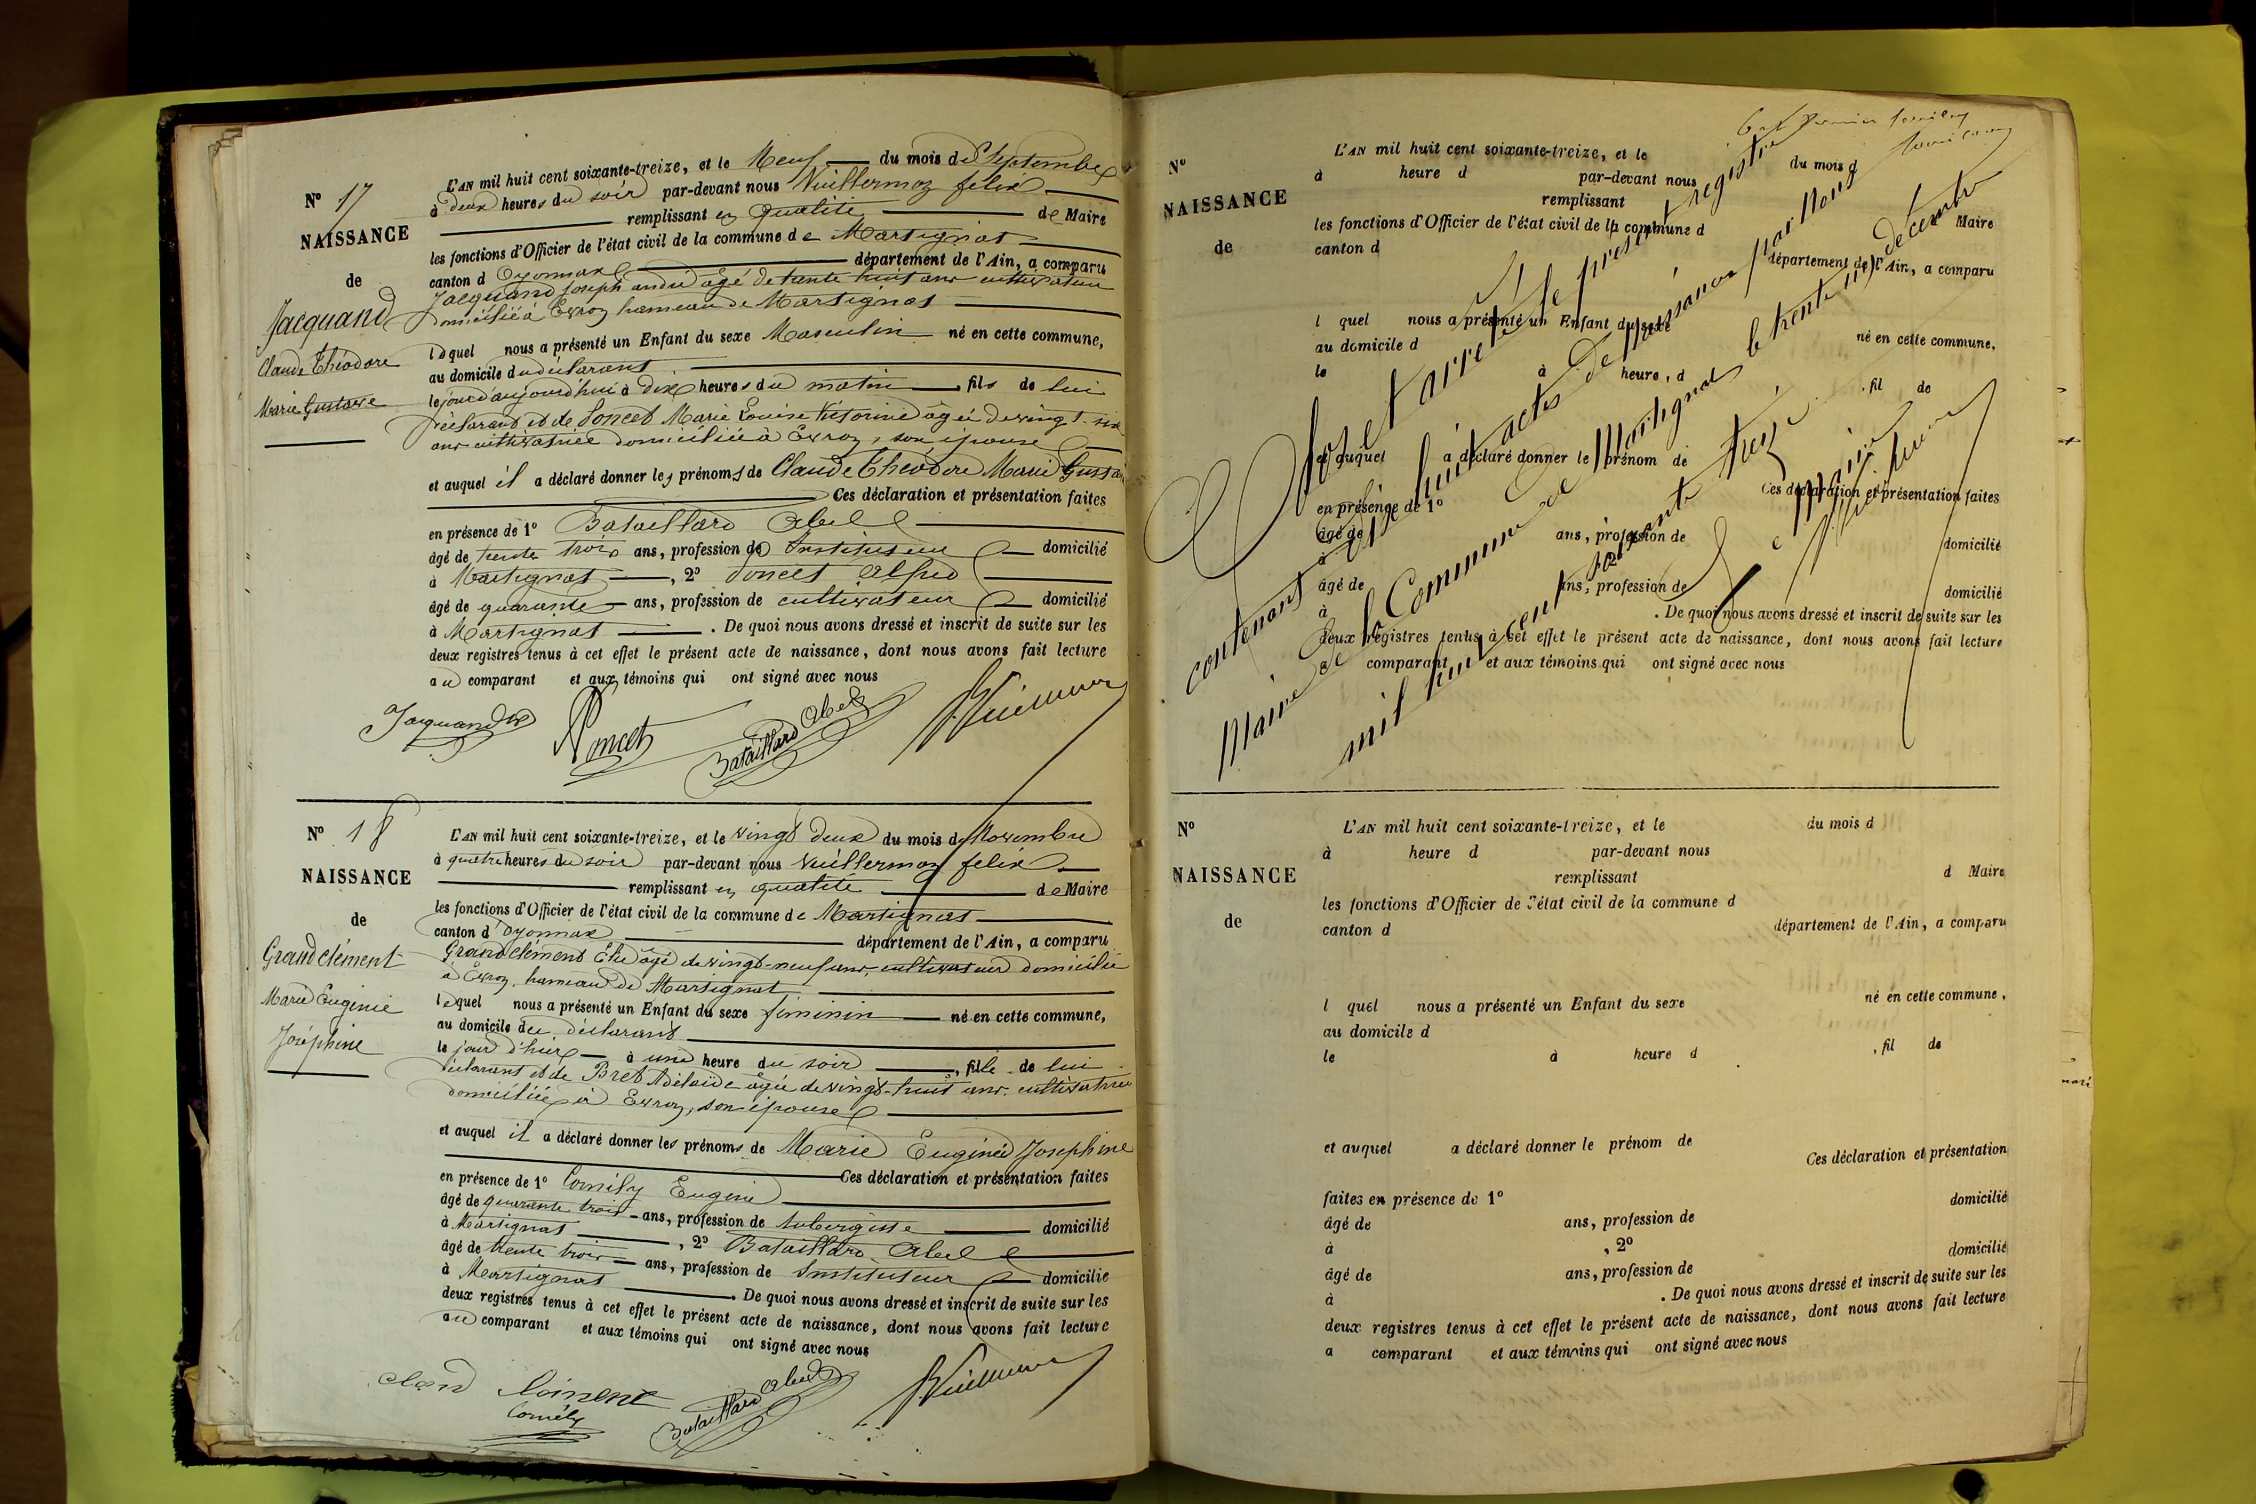 N° 17
NAISSANCE
de
Jacquand
Claude Théodore
Marie Gustave
L'AN mil huit cent soixante-treize, et le Neuf du mois de Septembre
à deux heures du soir par-devant nous Vuillermoz felix
remplissant en qualité de Maire
les fonctions d'Officier de l'état civil de la commune de Martignat
canton d'Oyonnax département de l'Ain, a comparu
Jacquand Joseph andré âgé de tante huit ans cultivateur
domicilié à Evron hameau de Martignat
lequel nous a présenté un Enfant du sexe Masculin né en cette commune,
au domicile du déclarant
le jour d'aujourd'hui à dix heures du matin, fils de lui
déclarant et de Poncet Marie Louise Victorine âgée de vingt-six
ans cultivatrice domiciliée à Evron, son épouse
et auquel il a déclaré donner les prénoms de Claude Théodore Marie Gustave
Ces déclaration et présentation faites
en présence de 1° Bataillard Abel
âgé de trente trois ans, profession de Instituteur domicilié
à Martignat, 2° Poncet Alfred
âgé de quarante ans, profession de cultivateur domicilié
à Martignat. De quoi nous avons dressé et inscrit de suite sur les
deux registres tenus à cet effet le présent acte de naissance, dont nous avons fait lecture
au comparant et aux témoins qui ont signé avec nous
Jacquand
Poncet
Bataillard Abel
N° 18
NAISSANCE
de
Grandclément
Marie Eugénie
Joséphine
L'AN mil huit cent soixante-treize, et le vingt deux du mois de Novembre
à quatre heures du soir par-devant nous Vuillermoz felix
remplissant en qualité de Maire
les fonctions d'Officier de l'état civil de la commune de Martignat
canton d'Oyonnax département de l'Ain, a comparu
Grandclément Elie âgé de vingt-neuf ans, cultivateur domicilié
à Evron, hameau de Martignat
lequel nous a présenté un Enfant du sexe féminin né en cette commune,
au domicile du déclarant
le jour d'hier à une heure du soir, fille de lui
déclarant et de Bret Adélaïde âgée de vingt-huit ans, cultivatrice
domiciliée à Evron, son épouse
et auquel il a déclaré donner les prénoms de Marie Eugénie Josephine
Ces déclaration et présentation faites
en présence de 1° Comély Eugène
âgé de quarante trois ans, profession de Aubergiste domicilié
à Martignat, 2° Bataillard Abel
âgé de trente trois ans, profession de Instituteur domicilié
à Martignat. De quoi nous avons dressé et inscrit de suite sur les
deux registres tenus à cet effet le présent acte de naissance, dont nous avons fait lecture
au comparant et aux témoins qui ont signé avec nous
Comély
Bataillard Abel
N°
NAISSANCE
de
L'AN mil huit cent soixante-treize, et le du mois d
à heure d par-devant nous
remplissant
Maire
les fonctions d'Officier de l'état civil de la commune d
canton d département de l'Ain, a comparu
l quel nous a présenté un Enfant du sexe né en cette commune,
au domicile d
le à heure, d, fil de
et auquel a déclaré donner le prénom de
Ces déclaration et présentation faites
en présence de 1°
âgé de ans, profession de domicilié
à
âgé de ans, profession de domicilié
à . De quoi nous avons dressé et inscrit de suite sur les
deux registres tenus à cet effet le présent acte de naissance, dont nous avons fait lecture
comparant et aux témoins qui ont signé avec nous
Clos et arrêté le présent registre
contenant dix huit actes de Naissances par Nous
Maire de la Commune de Martignat le trente un décembre
mil huit cent soixante treize
Le Maire
N°
NAISSANCE
de
L'AN mil huit cent soixante-treize, et le du mois d
à heure d par-devant nous
remplissant d Maire
les fonctions d'Officier de l'état civil de la commune d
canton d département de l'Ain, a comparu
l quel nous a présenté un Enfant du sexe né en cette commune,
au domicile d
le à heure d, fil de
et auquel a déclaré donner le prénom de
Ces déclaration et présentation
faites en présence de 1° domicilié
âgé de ans, profession de
à , 2° domicilié
âgé de ans, profession de
à . De quoi nous avons dressé et inscrit de suite sur les
deux registres tenus à cet effet le présent acte de naissance, dont nous avons fait lecture
a comparant et aux témoins qui ont signé avec nous